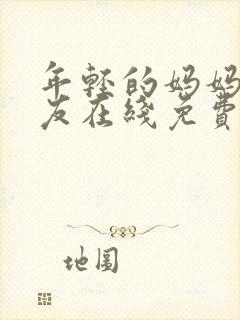 年輕的妈妈
友在綫免費
地圖